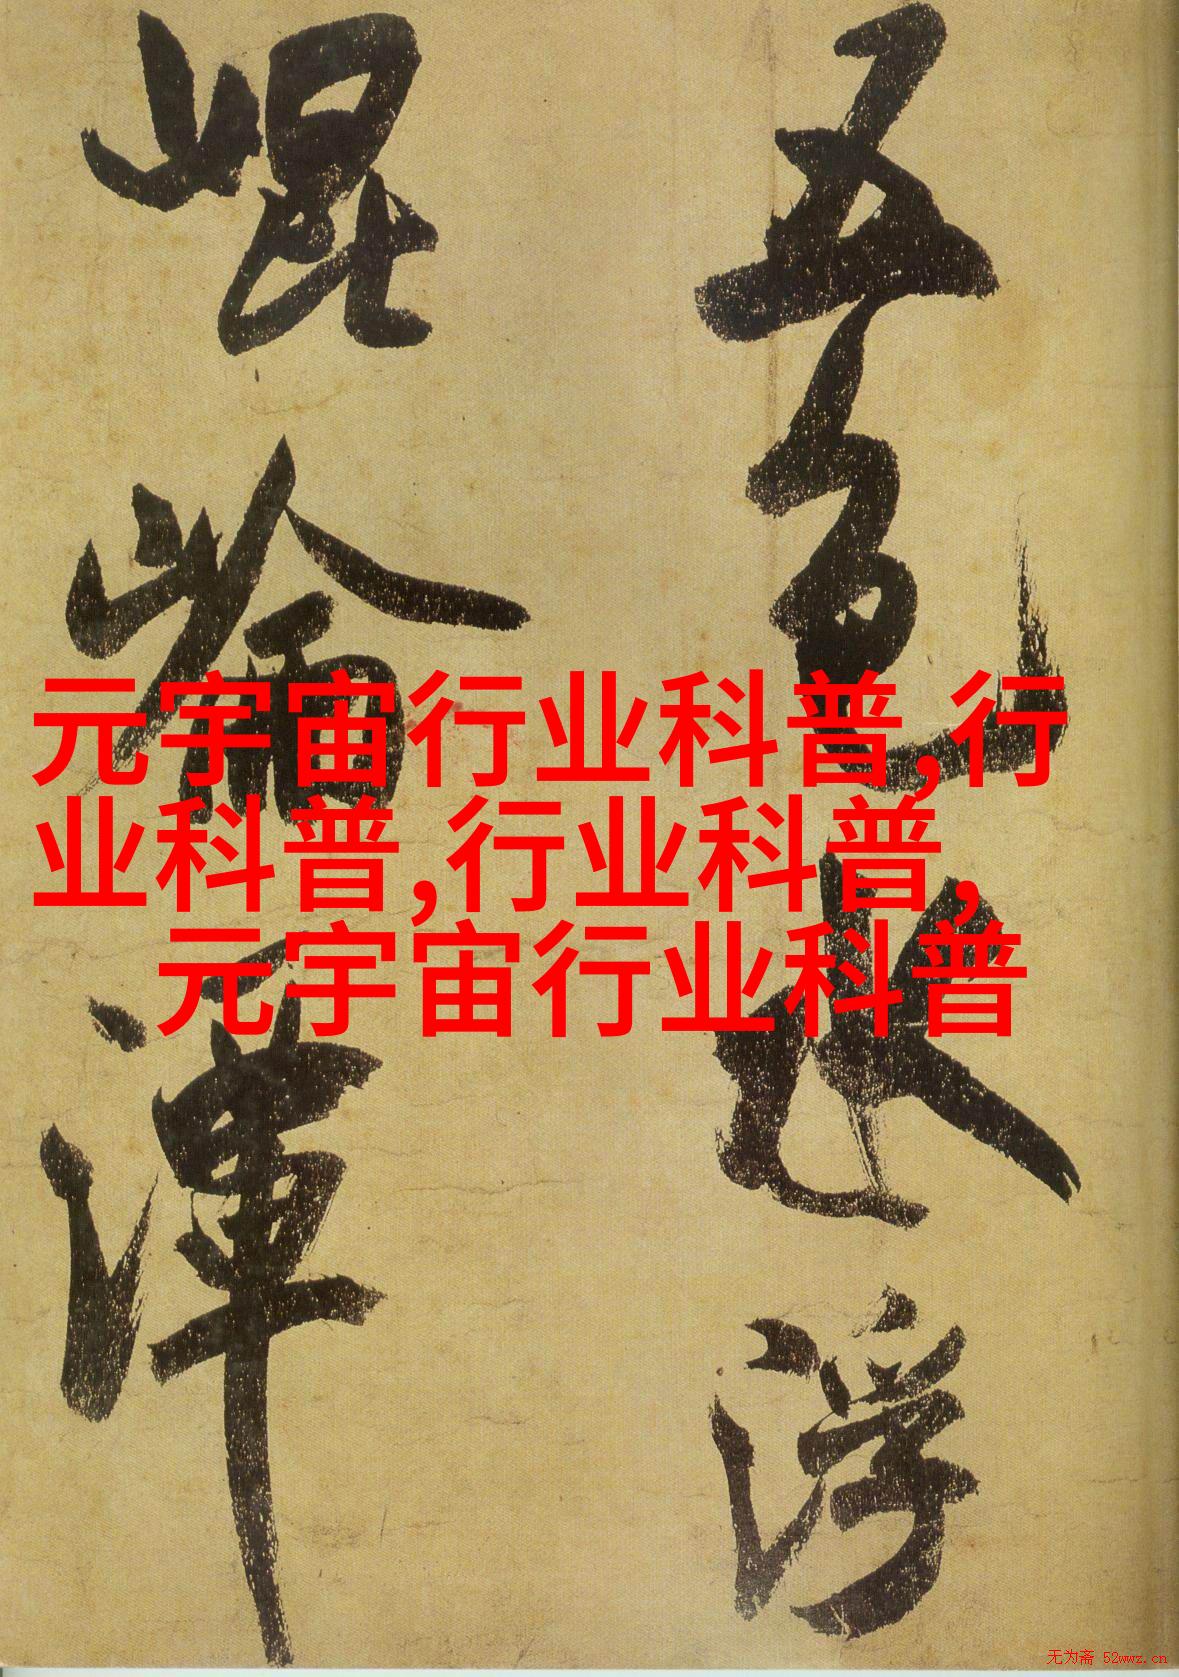 五色水浮
崐崘潭
元宇宙行业科普,行
业科普,行业科普,
元宇宙行业科普
无为斋 52wwz.cn